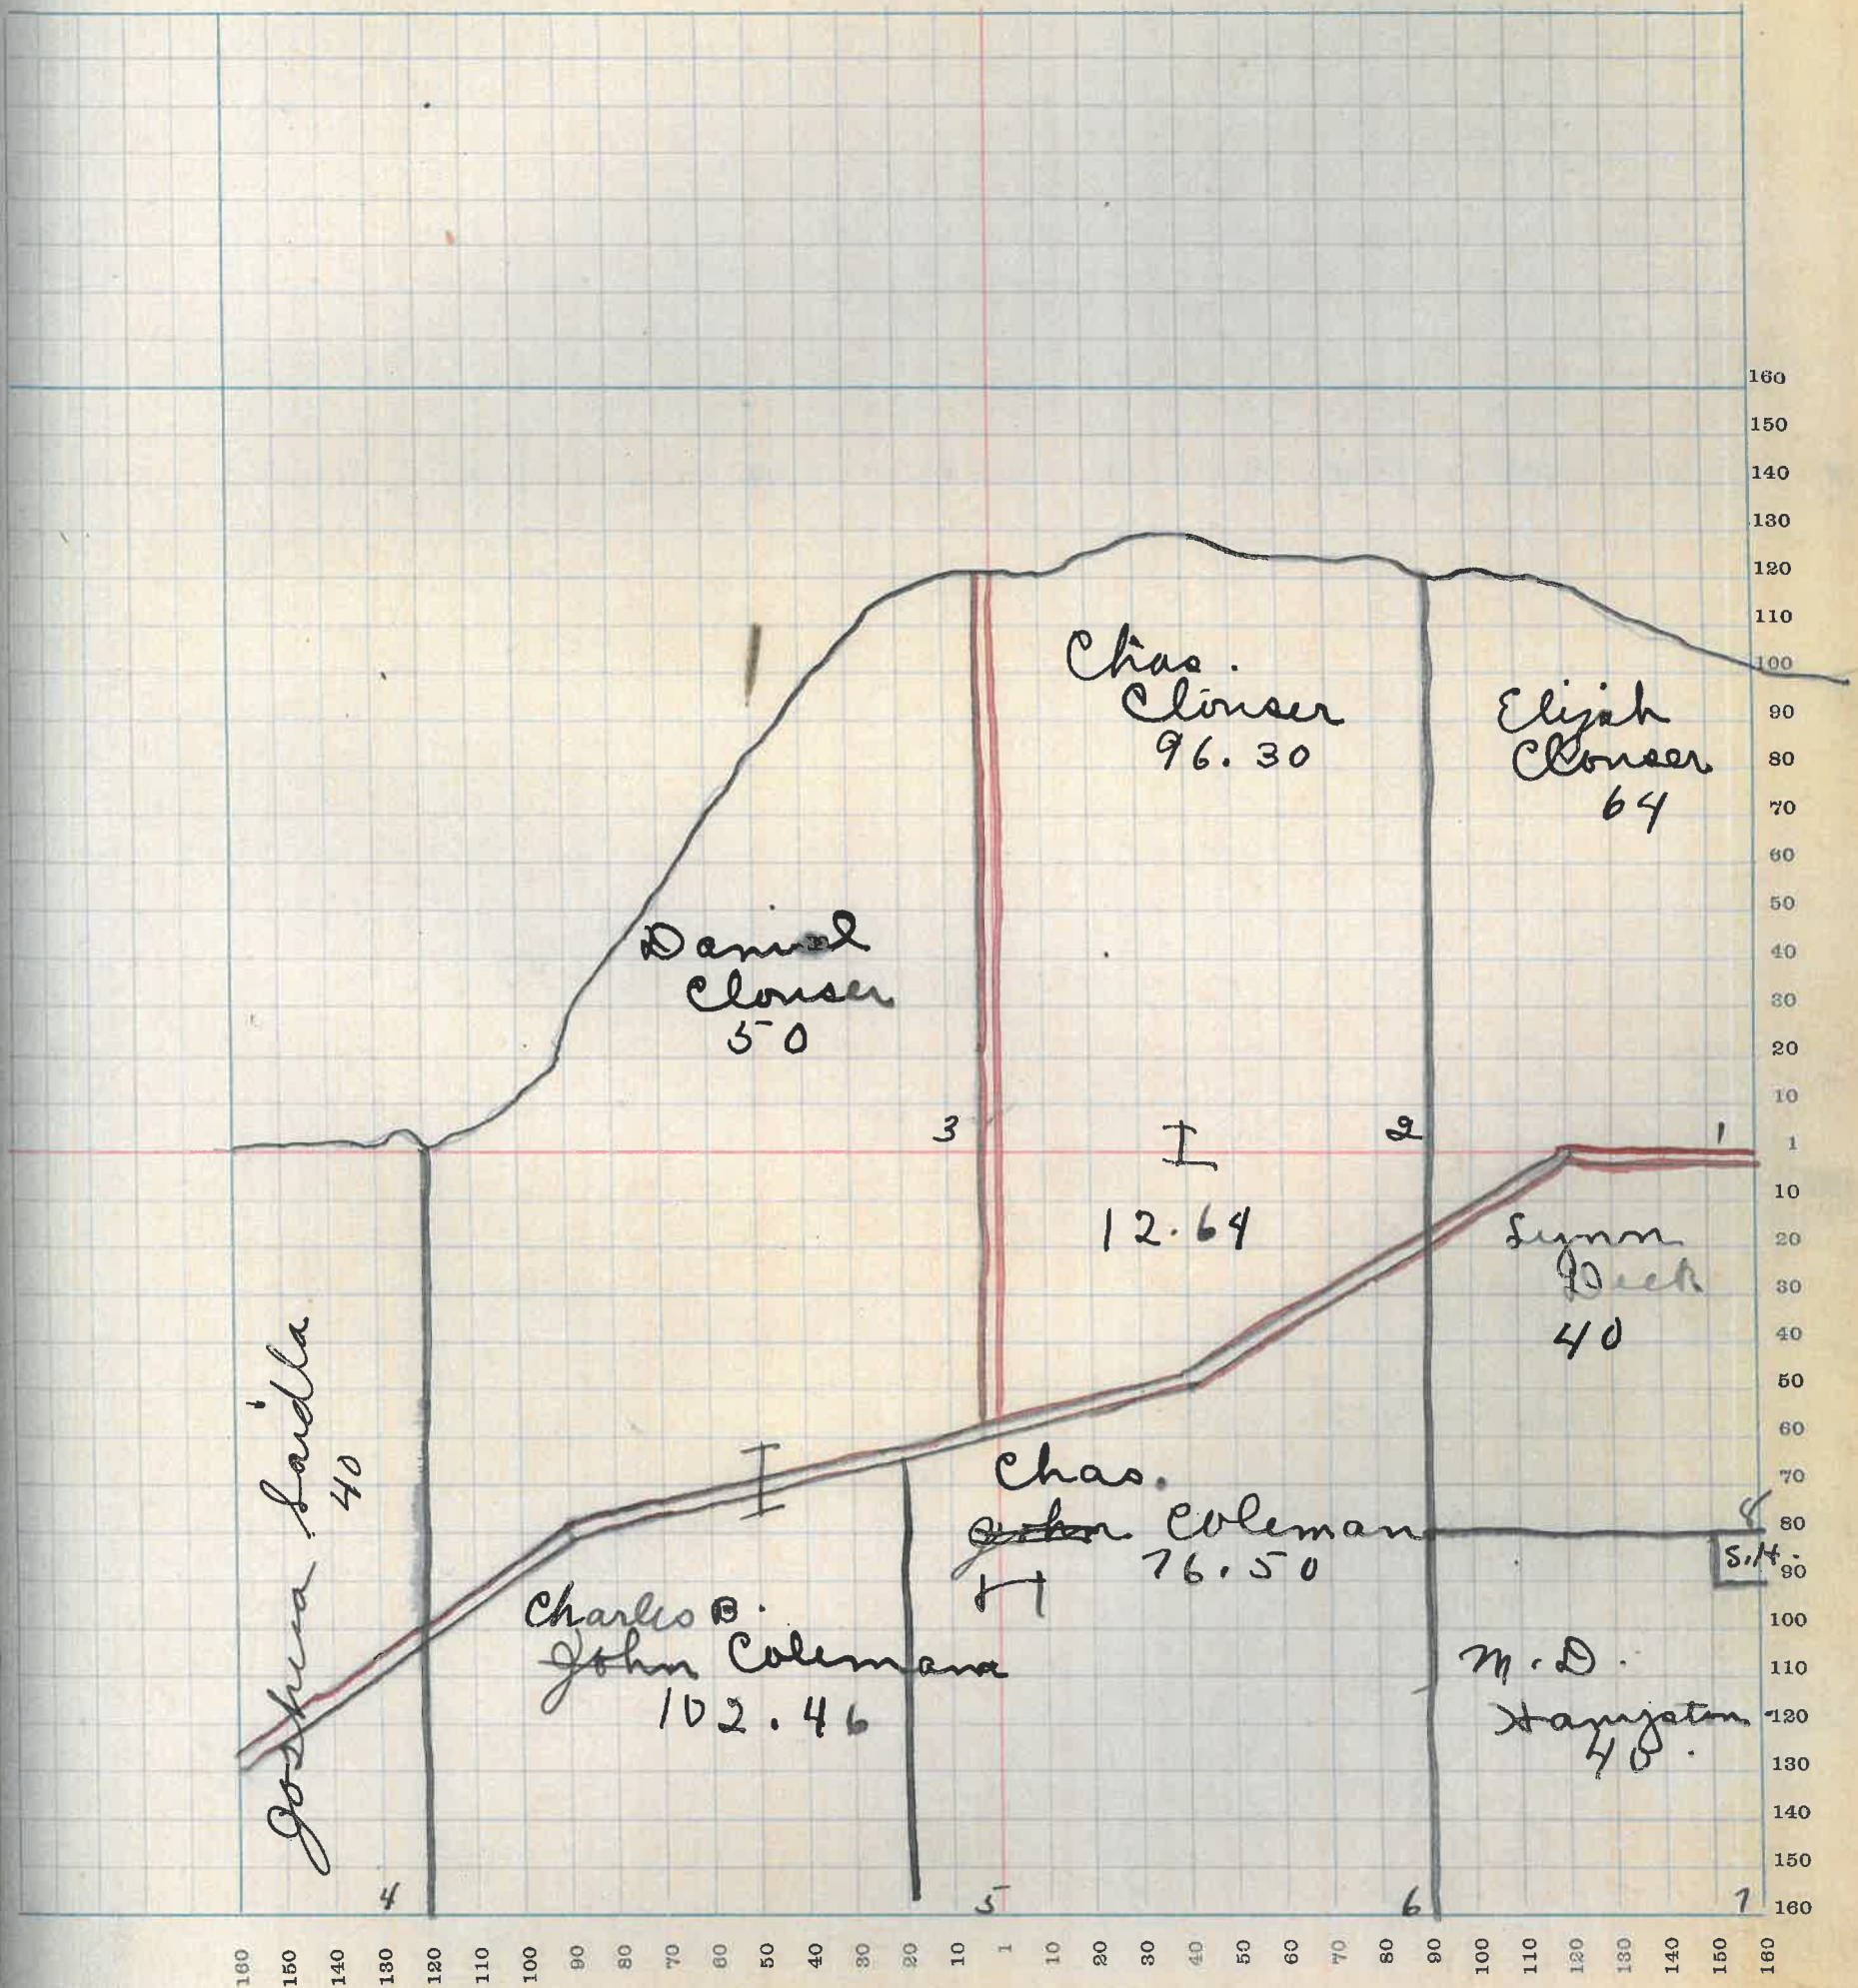 160
150
140
130
120
110
100
90
80
70
60
50
40
30
20
10
1
10
20
30
40
50
60
70
80
90
100
110
120
130
140
150
160
Chas.
Clouser
96.30
Elijah
Clouser
64
Daniel
Clouser
50
3
I
2
1
12.64
Lynn
Deck
40
Joshua
40
I
Chas.
John Coleman
76.50
H
8
S.H.
Charles B.
John Coleman
102.46
M.D.
40
4
5
6
7
160
150
140
130
120
110
100
90
80
70
60
50
40
30
20
10
1
10
20
30
40
50
60
70
80
90
100
110
120
130
140
150
160